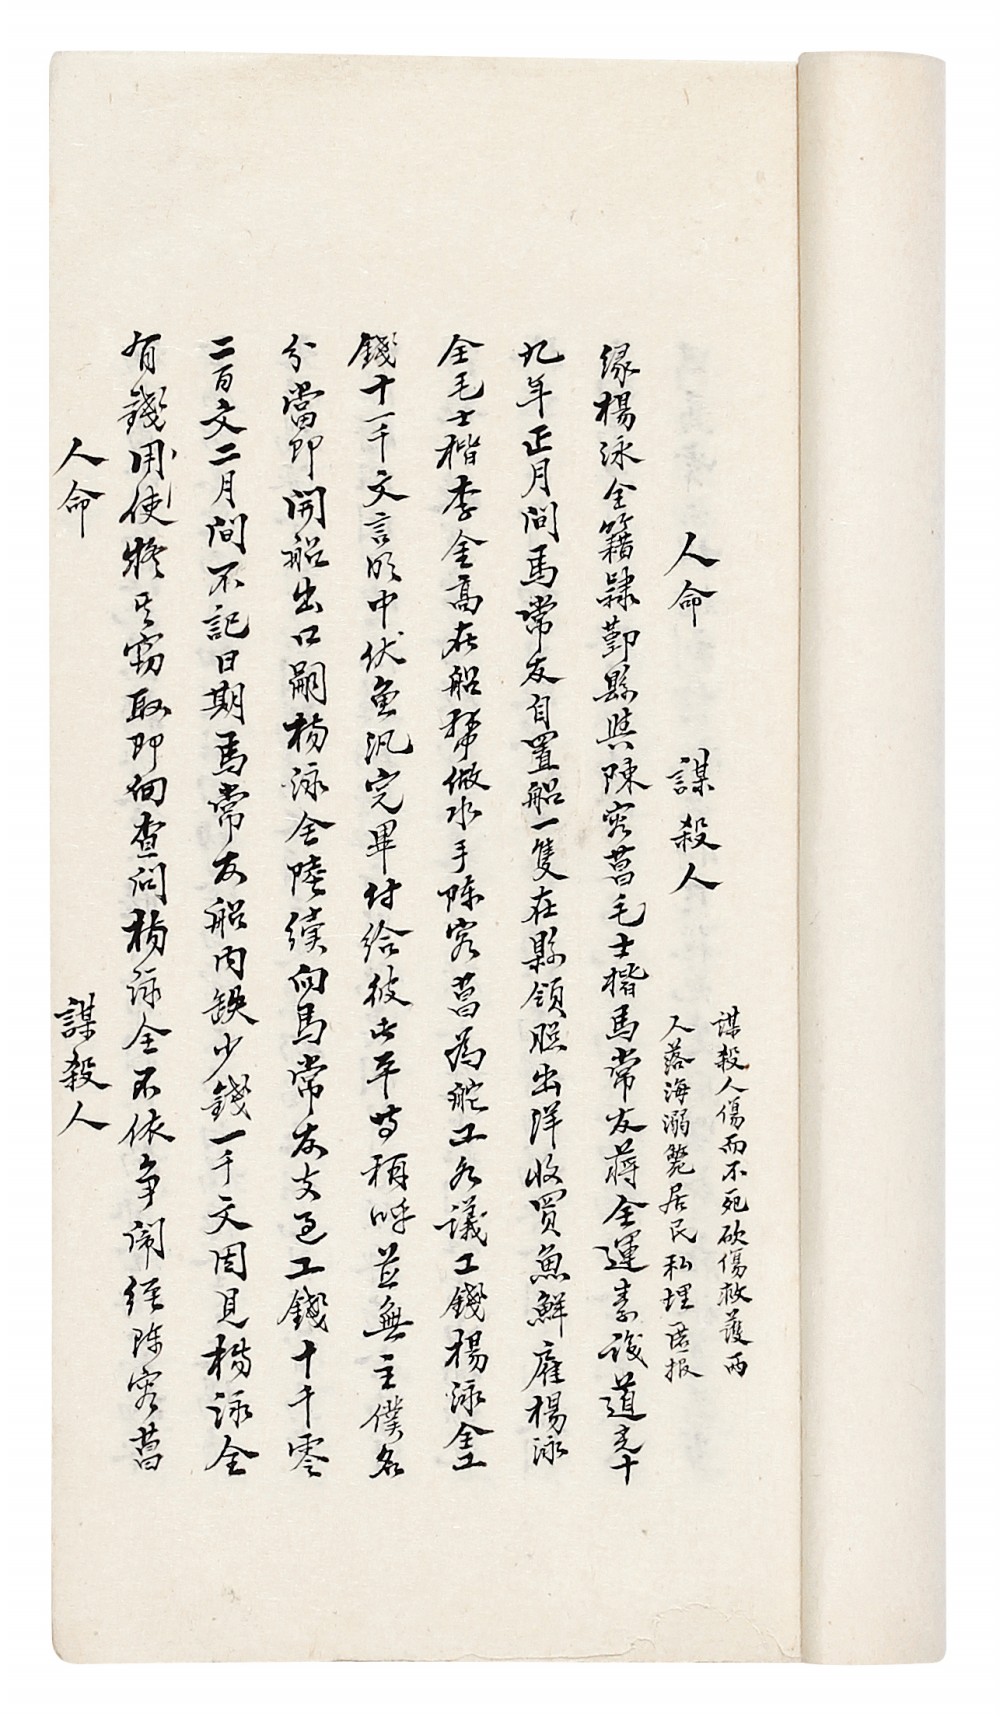 人命 謀殺人 謀殺人傷而不死砍傷救護両
人落海溺斃居民私埋匿报
缘楊泳全籍隸鄞縣與陳容菖毛士楷馬常友蔣全運素識道光十
九年正月間馬常友自置船一隻在縣領照出洋收買魚鮮雇楊泳
全毛士楷李全高在船帮做水手陈容菖為舵工各議工錢楊泳全工
錢十一千文言明中伏魚汛完畢付給彼此平等稱呼並無主僕名
分當即開船出口嗣楊泳全陸續向馬常友支過工錢十千零
二百文二月間不記日期馬常友船内缺少錢一千文因見楊泳全
有錢用使疑其竊取即向查问楊泳全不依争鬧经陈容菖
人命 謀殺人